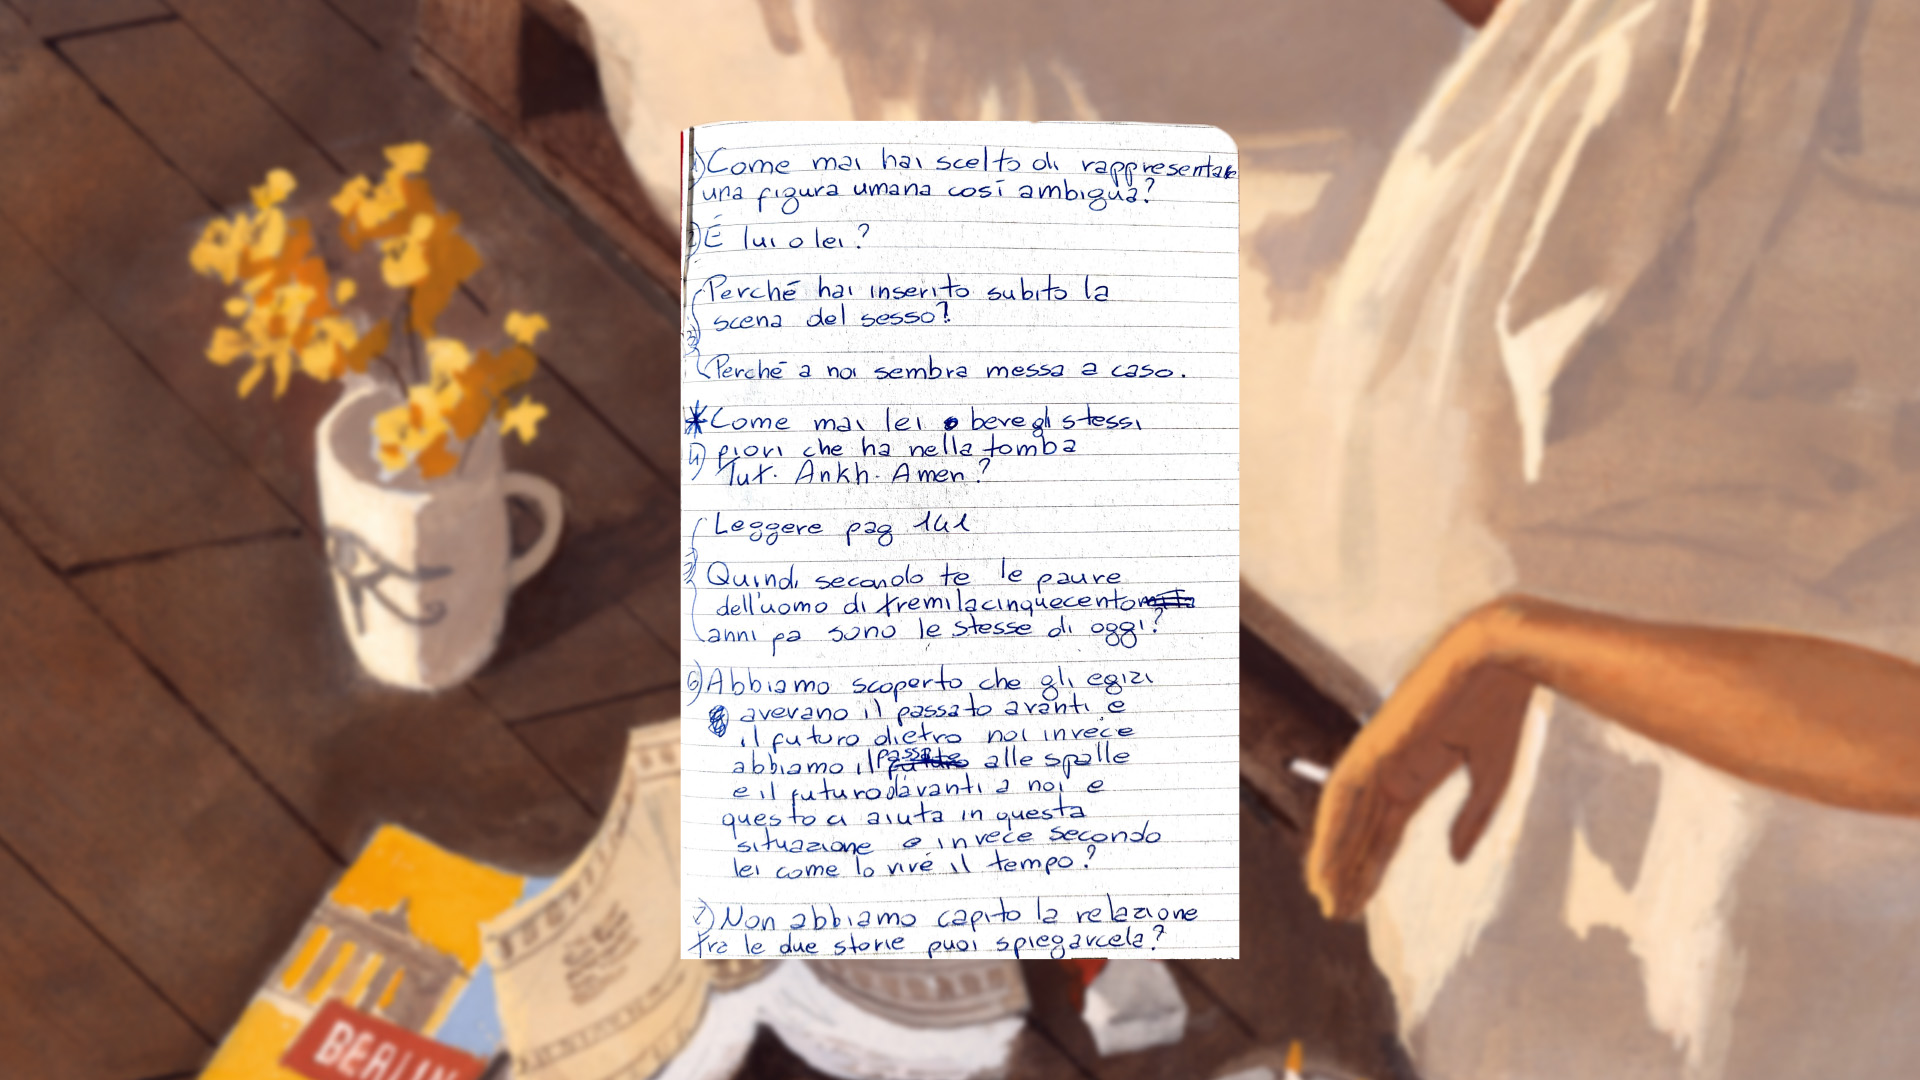 1) Come mai hai scelto di rappresentare
una figura umana così ambigua?
2) É lui o lei?
Perché hai inserito subito la
scena del sesso?
3)
Perché a noi sembra messa a caso.
*Come mai lei beve gli stessi
4) fiori che ha nella tomba
Tut. Ankh. Amen?
Leggere pag 141
5)
Quindi secondo te le paure
dell'uomo di tremilacinquecento
anni fa sono le stesse di oggi?
6) Abbiamo scoperto che gli egizi
avevano il passato avanti e
il futuro dietro noi invece
abbiamo il passato alle spalle
e il futuro davanti a noi e
questo ci aiuta in questa
situazione e invece secondo
lei come lo vive il tempo?
7) Non abbiamo capito la relazione
fra le due storie puoi spiegarcela?
BERLIN